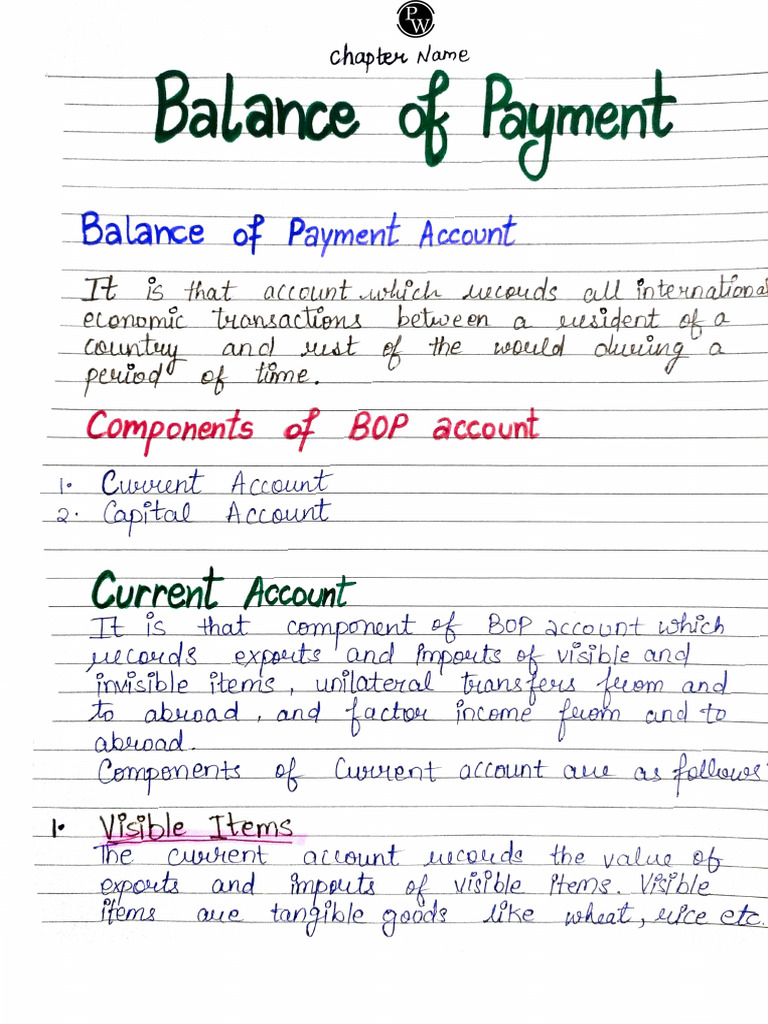 PW
Chapter Name
Balance of Payment
Balance of Payment Account
It is that account which records all international
economic transactions between a resident of a
country and rest of the world during a
period of time.
Components of BOP account
1. Current Account
2. Capital Account
Current Account
It is that component of BOP account which
records exports and imports of visible and
invisible items, unilateral transfers from and
to abroad, and factor income from and to
abroad.
Components of Current account are as follows:
1. Visible Items
The current account records the value of
exports and imports of visible items. Visible
items are tangible goods like wheat, rice etc.